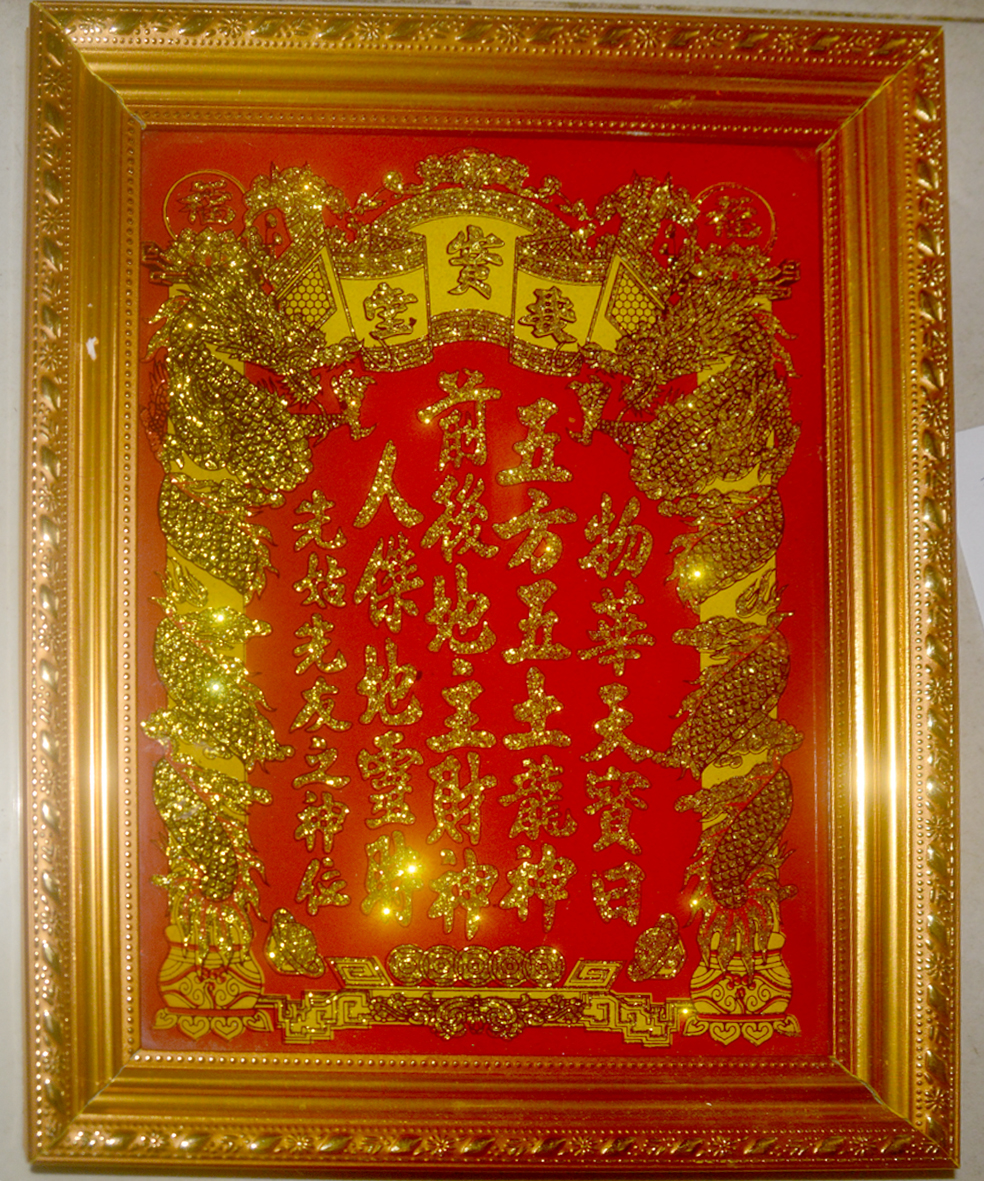 福
福
聚寶堂
物華天寶日
五方五土龍神
前後地主財神
人傑地靈財
先姑先友之神位